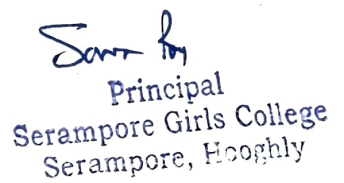 Principal
Serampore Girls College
Serampore, Hooghly